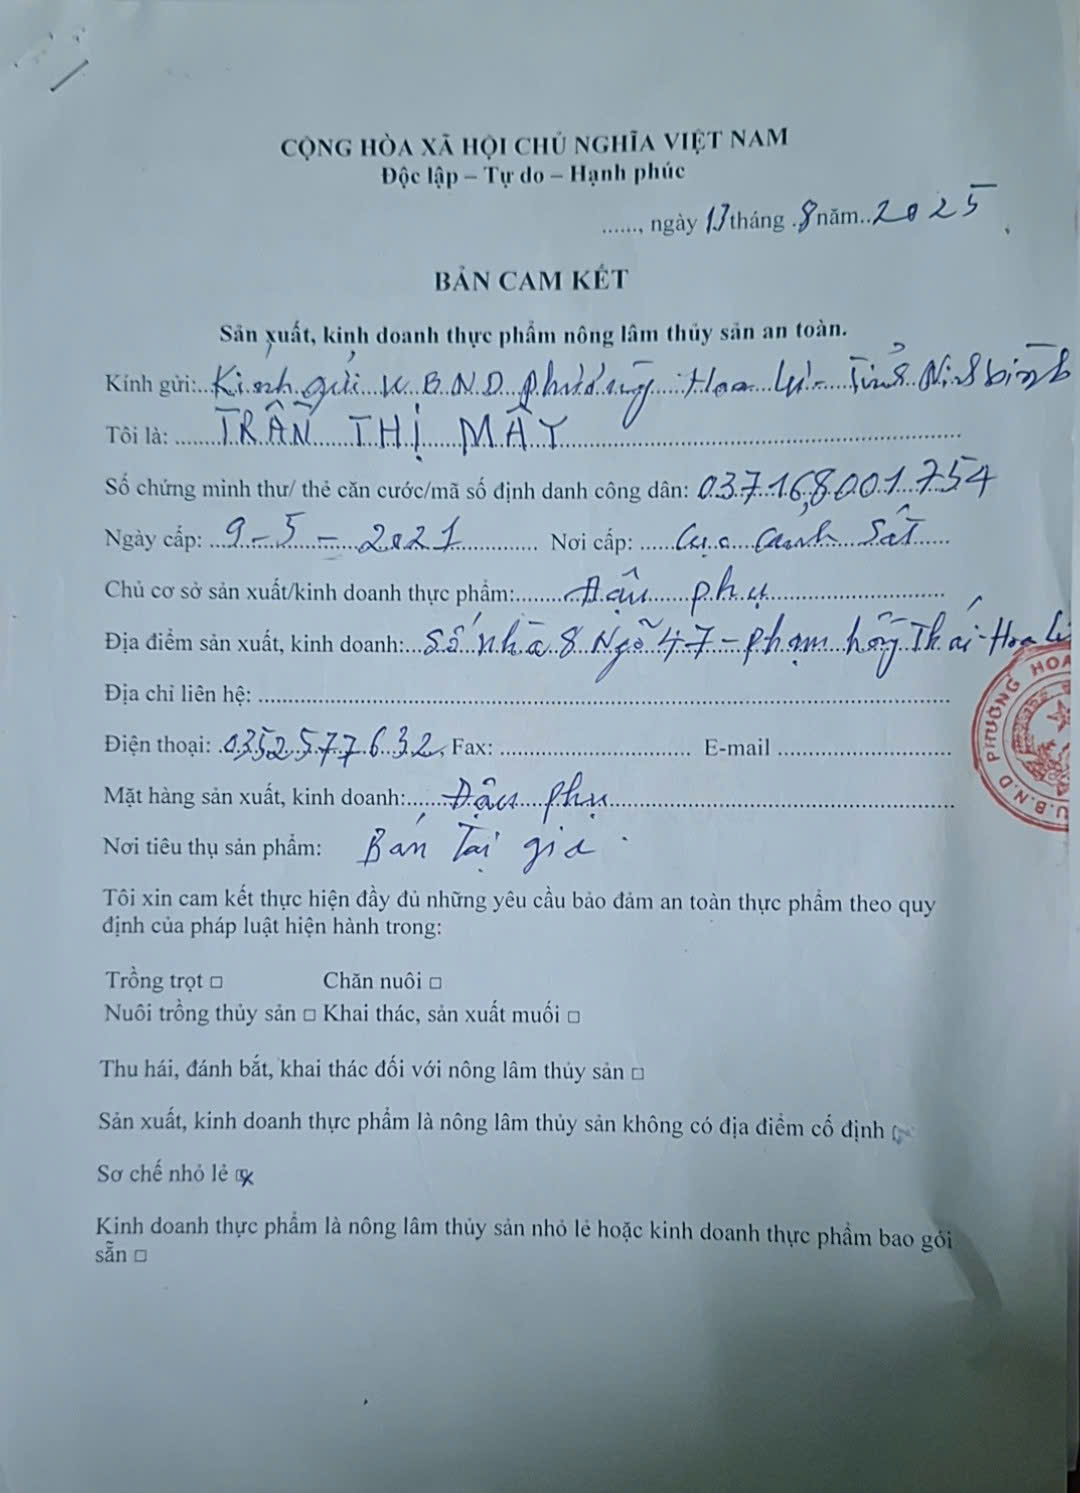 CỘNG HÒA XÃ HỘI CHỦ NGHĨA VIỆT NAM
Độc lập – Tự do – Hạnh phúc
......, ngày 13 tháng .8 năm..2025
BẢN CAM KẾT
Sản xuất, kinh doanh thực phẩm nông lâm thủy sản an toàn.
Kính gửi:..Kính gửi U.B.N.D phường Hoa Lư - Tỉnh Ninh bình
Tôi là: TRẦN THỊ MÂY
Số chứng minh thư/ thẻ căn cước/mã số định danh công dân: 037168001754
Ngày cấp: 9-5-2021 Nơi cấp: Cục Cảnh Sát
Chủ cơ sở sản xuất/kinh doanh thực phẩm: Đậu phụ
Địa điểm sản xuất, kinh doanh: Số nhà 8 Ngõ 47 - phạm hồng Thái - Hoa L
Địa chỉ liên hệ:
Điện thoại: 0352577632, Fax: E-mail
Mặt hàng sản xuất, kinh doanh: Đậu phụ
Nơi tiêu thụ sản phẩm: Bán Tại gia
Tôi xin cam kết thực hiện đầy đủ những yêu cầu bảo đảm an toàn thực phẩm theo quy
định của pháp luật hiện hành trong:
Trồng trọt □ Chăn nuôi □
Nuôi trồng thủy sản □ Khai thác, sản xuất muối □
Thu hái, đánh bắt, khai thác đối với nông lâm thủy sản □
Sản xuất, kinh doanh thực phẩm là nông lâm thủy sản không có địa điểm cố định □
Sơ chế nhỏ lẻ ☒
Kinh doanh thực phẩm là nông lâm thủy sản nhỏ lẻ hoặc kinh doanh thực phẩm bao gói
sẵn □
U.B.N.D PHƯỜNG HOA